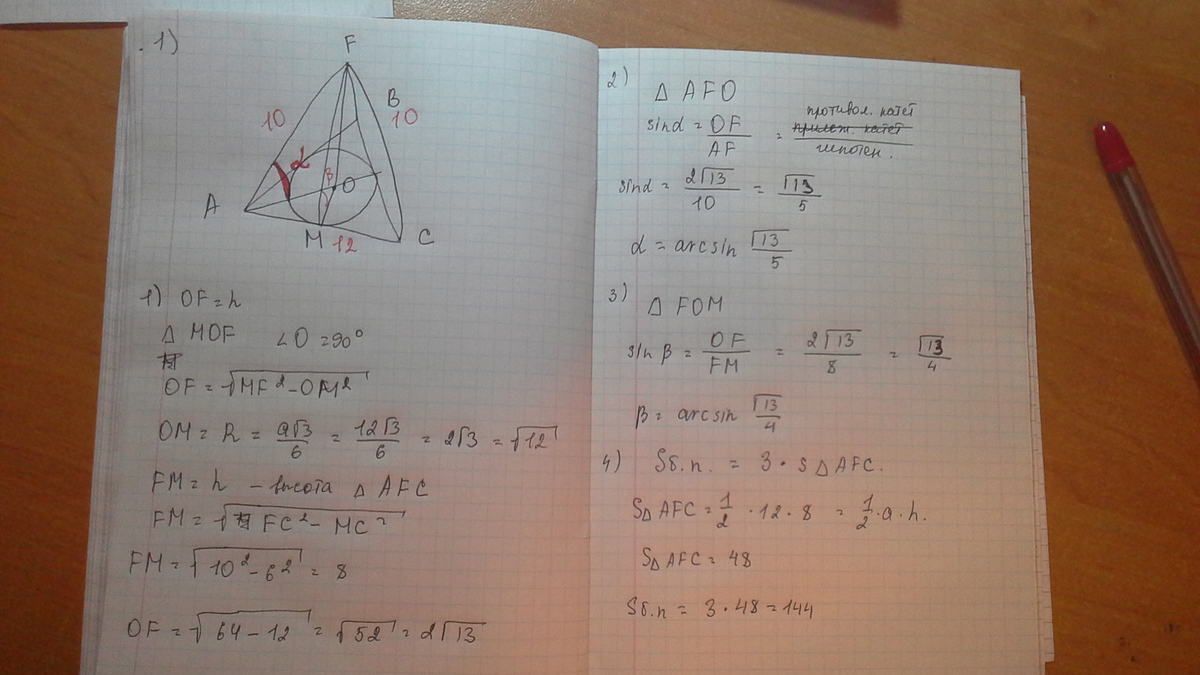 . 1)
F
B
10
10
α
β
O
A
M
12
C
1) OF = h
Δ MOF ∠O = 90°
OF = √(MF² - OM²)
OM = R = a√3/6 = 12√3/6 = 2√3 = √12
FM = h - высота Δ AFC
FM = √(FC² - MC²)
FM = √(10² - 6²) = 8
OF = √(64 - 12) = √52 = 2√13
2)
Δ AFO
sinα = OF/AF = противол. катет / прилеж. катет / гипотен.
sinα = 2√13/10 = √13/5
α = arcsin √13/5
3)
Δ FOM
sin β = OF/FM = 2√13/8 = √13/4
β = arcsin √13/4
4) Sб.п. = 3 · S Δ AFC.
SΔ AFC = 1/2 · 12 · 8 = 1/2 · a · h.
SΔ AFC = 48
Sб.п = 3 · 48 = 144